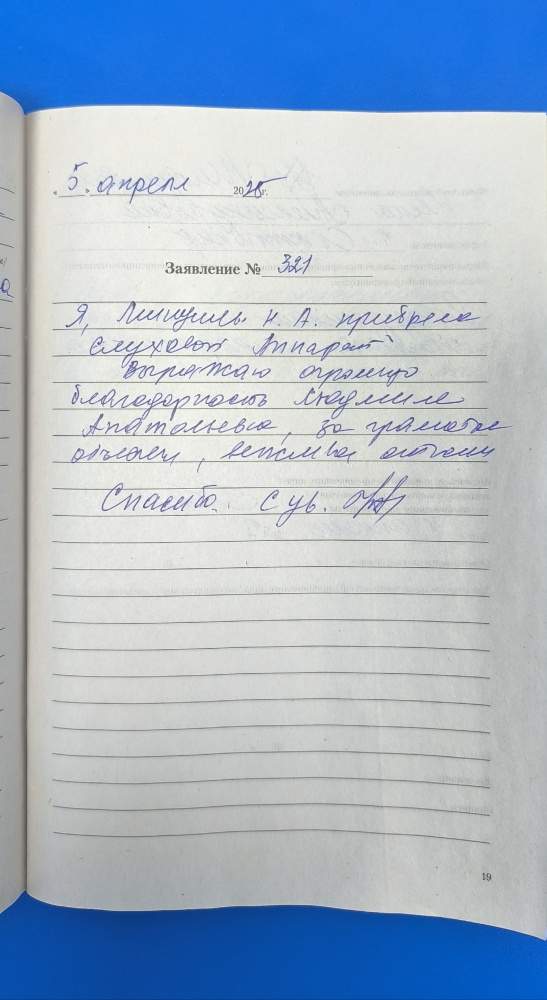 « 5 » апреля 2025 г.
Заявление № 321
Я, Н. А. приобрела
слуховой Аппарат
Выражаю огромную
благодарность Людмиле
Анатольевне, за грамотное
вежливое
Спасибо. С ув.
19